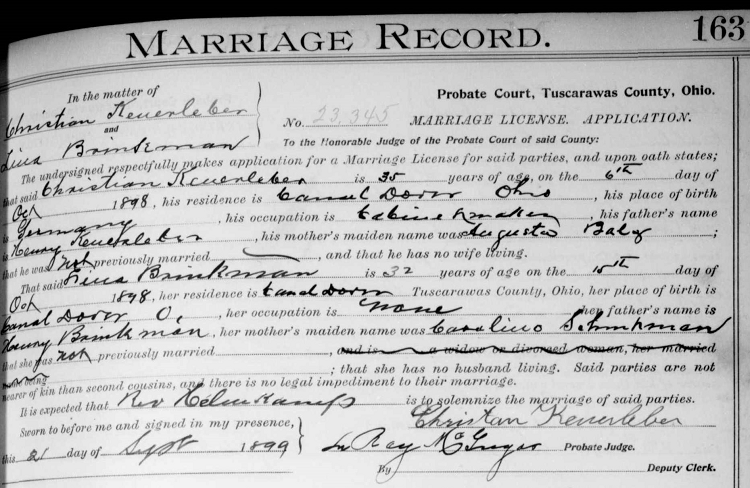 163
MARRIAGE RECORD.
In the matter of
Christian Keuerleber
and
Lina Brinkman
Probate Court, Tuscarawas County, Ohio.
No. 23,345 MARRIAGE LICENSE. APPLICATION.
To the Honorable Judge of the Probate Court of said County:
The undersigned respectfully makes application for a Marriage License for said parties, and upon oath states;
that said Christian Keuerleber is 35 years of age, on the 6th day of
Oct 1898, his residence is Canal Dover Ohio, his place of birth
is Germany, his occupation is Cabinetmaker, his father's name
is Henry Keuerleber, his mother's maiden name was Augusta;
that he was not previously married, and that he has no wife living.
That said Lina Brinkman is 32 years of age on the 15th day of
Oct 1898, her residence is Canal Dover Tuscarawas County, Ohio, her place of birth is
Canal Dover O, her occupation is None her father's name is
Henry Brinkman, her mother's maiden name was
that she was not previously married, and is a widow or divorced woman, her married
name being; that she has no husband living. Said parties are not
nearer of kin than second cousins, and there is no legal impediment to their marriage.
It is expected that Rev is to solemnize the marriage of said parties.
Sworn to before me and signed in my presence, Christian Keuerleber
this 21 day of Sept 1899 Probate Judge.
By Deputy Clerk.